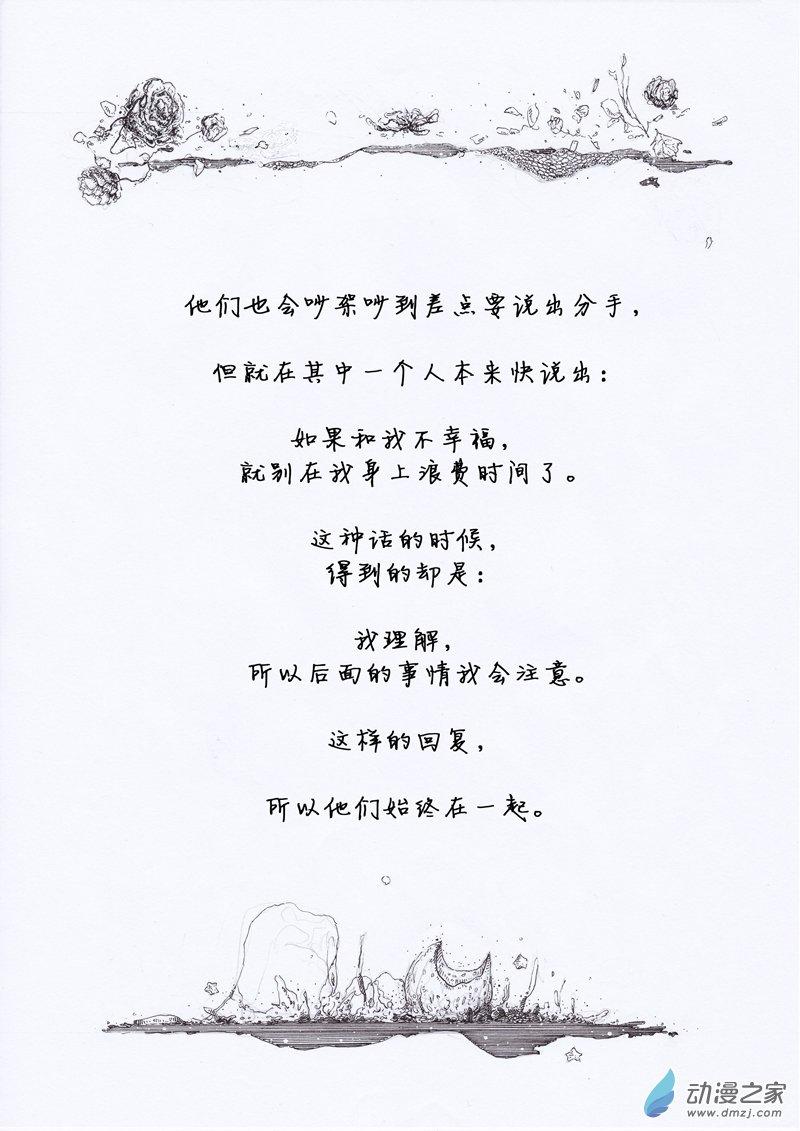 他们也会吵架吵到差点要说出分手，
但就在其中一个人本来快说出：
如果和我不幸福，
就别在我身上浪费时间了。
这种话的时候，
得到的却是：
我理解，
所以后面的事情我会注意。
这样的回复，
所以他们始终在一起。
动漫之家
www.dmzj.com